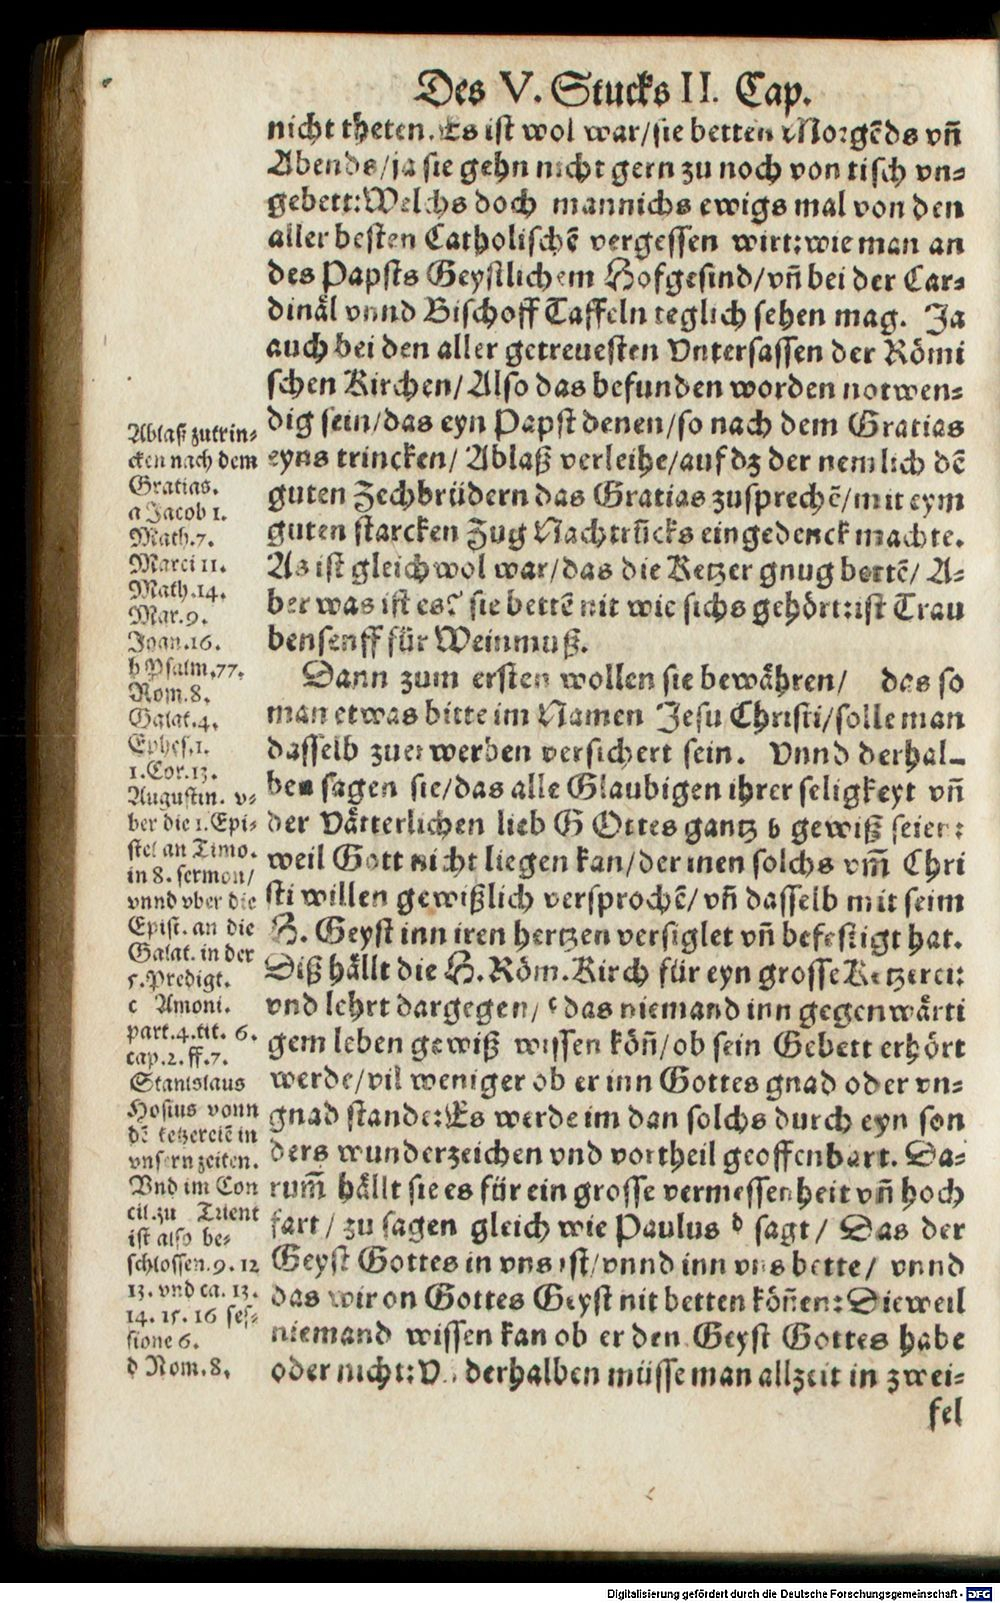 Des V. Stucks II. Cap.
nicht theten. Es ist wol war/sie betten Morgẽds vñ
Abends/ja sie gehn nicht gern zu noch von tisch vn=
gebett: Welchs doch mannichs ewigs mal von den
aller besten Catholischẽ vergessen wirt: wie man an
des Papsts Geystlichem Hofgesind/vñ bei der Car=
dinäl vnnd Bischoff Taffeln teglich sehen mag. Ja
auch bei den aller getreuesten Vntersassen der Römi
schen Kirchen/ Also das befunden worden notwen=
dig sein/das eyn Papst denen/so nach dem Gratias
eyns trincken/ Ablaß verleihe/auf dz der nemlich dẽ
guten Zechbrüdern das Gratias zusprechẽ/mit eym
guten starcken Zug Nachtrucks eingedenck machte.
As ist gleichwol war/das die Ketzer gnug bettẽ/ A=
ber was ist es? sie bettẽ nit wie sichs gehört: ist Trau
bensenff für Weinmuß.
Dann zum ersten wollen sie bewähren/ das so
man etwas bitte im Namen Jesu Christi/solle man
dasselb zuerwerben versichert sein. Vnnd derhal=
ben sagen sie/das alle Glaubigen ihrer seligkeyt vñ
der Vätterlichen lieb GOttes gantz b gewiß seien:
weil Gott nicht liegen kan/der inen solchs vm̃ Chri
sti willen gewißlich versprochẽ/ vñ dasselb mit seim
H. Geyst inn iren hertzen versiglet vñ befestigt hat.
Diß hällt die H. Röm. Kirch für eyn grosse Ketzerei:
vnd lehrt dargegen/ c das niemand inn gegenwärti
gem leben gewiß wissen köñ/ob sein Gebett erhört
werde/vil weniger ob er inn Gottes gnad oder vn=
gnad stande: Es werde im dan solchs durch eyn son
ders wunderzeichen vnd vortheil geoffenbart. Da=
rum̃ hällt sie es für ein grosse vermessenheit vñ hoch
fart/ zu sagen gleich wie Paulus d sagt/ Das der
Geyst Gottes in vns ist/vnnd inn vns bette/ vnnd
das wir on Gottes Geyst nit betten köñen: Dieweil
niemand wissen kan ob er den Geyst Gottes habe
oder nicht: derhalben müsse man allzeit in zwei=
fel
Ablaß zutrin=
cken nach dem
Gratias.
a Jacob 1.
Math.7.
Marci 11.
Math.14.
Mar.9.
Joan.16.
b Psalm.77.
Rom.8.
Galat.4.
Ephes.1.
1.Cor.13.
Augustin. v=
ber die 1. Epi=
stel an Timo.
in 8. sermon/
vnnd vber die
Epist. an die
Galat. in der
5. Predigt.
c Amoni.
part.4.tit. 6.
cap.2. ff.7.
Stanislaus
Hosius vonn
dẽ ketzereiẽ in
vnsern zeiten.
Vnd im Con
cil. zu Trient
ist also be=
schlossen. 9. 12
13. vnd ca. 13.
14. 15. 16 ses=
sione 6.
d Rom.8.
Digitalisierung gefördert durch die Deutsche Forschungsgemeinschaft - DFG